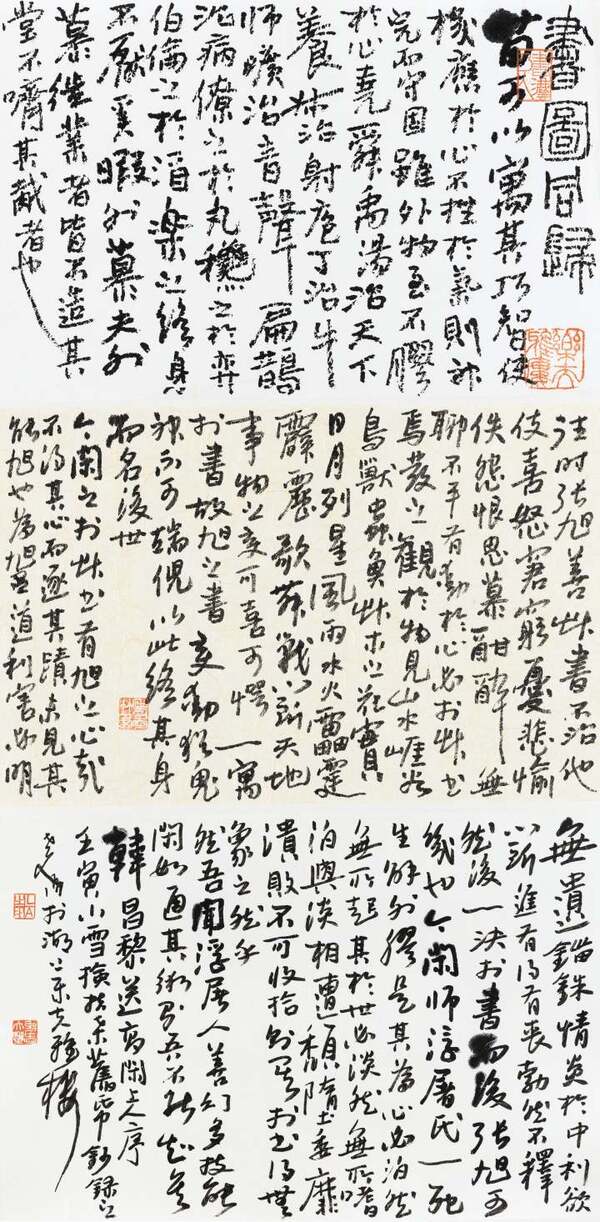 書圖同歸
苟可以寓其巧智使
機應於心不挫於氣則神
完而守固雖外物至不膠
於心堯舜禹湯治天下
養叔治射庖丁治牛
師曠治音聲扁鵲
治病僚之於丸穐之於弈
伯倫之於酒樂之終身
不厭奚暇外慕夫外
慕徙業者皆不造其
堂不嚌其胾者也
往时張旭善艸書不治他
伎喜怒窘窮憂悲愉
佚怨恨思慕酣醉無
聊不平有動於心必於艸書
焉發之觀於物見山水崖谷
鳥獸蟲魚艸木之花實
日月列星風雨水火雷霆
霹靂歌舞戰鬪天地
事物之變可喜可愕一寓
於書故旭之書變動猶鬼
神不可端倪以此終其身
而名後世
今閑之於艸書有旭之心哉
不得其心而逐其蹟未見其
能旭也為旭有道利害必明
無遺錙銖情炎於中利欲
鬪進有得有喪勃然不釋
然後一決於書而後張旭可
幾也今閑師浮屠氏一死
生解外膠是其為心必泊然
無所起其於世必淡然無所嗜
泊與淡相遭頹墮委靡
潰敗不可收拾則其於書得無
象之然乎
然吾聞浮屠人善幻多技能
閑如通其術則吾不能知矣
韓昌黎送高閑上人序
壬寅小雪撿拾舊帋鈔錄之
於湖上樓